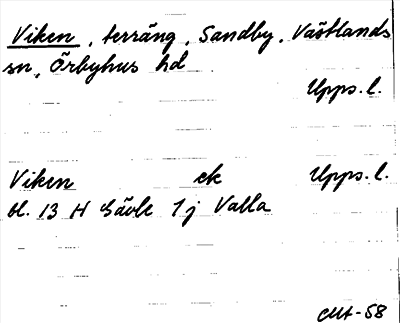 Viken, terräng, Sandby, Västlands
sn, Örbyhus hd
Upps. l.
Viken ek Upps. l.
bl. 13 H Gävle 1j Valla
-58